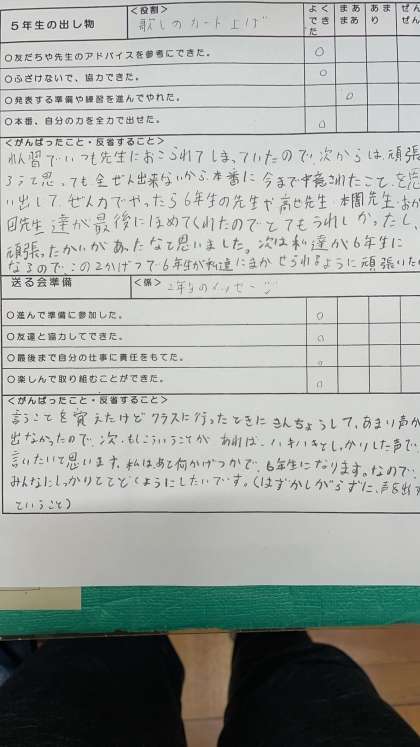 5年生の出し物
<役割>
歌しのカード上げ
よくできた
まあまあ
あまり
ぜん
ぜん
○友だちや先生のアドバイスを参考にできた。
○
○ふざけないで、協力できた。
○
○発表する準備や練習を進んでやれた。
○
○本番、自分の力を全力で出せた。
○
<がんばったこと・反省すること>
練習でいつも先生におこられてしまっていたので、次からは頑張
ろうて思っても全ぜん出来ないから本番に今まで中意されたことを思
い出して、ぜん力でやったら6年生の先生や高せ先生・本間先生・
田先生達が最後にほめてくれたのでとてもうれしかったし、
頑張ったかいがあったなて思いました。次は私達が6年生に
なるので、この2かげつで6年生が私達にまかせられるように頑張いた
送る会準備
<係>
2年生のメッセージ
○進んで準備に参加した。
○
○友達と協力してできた。
○
○最後まで自分の仕事に責任をもてた。
○
○楽しんで取り組むことができた。
○
<がんばったこと・反省すること>
言うことを覚えたけどクラスに行ったときにきんちょうして、あまり声が
出なかったので、次、もしこういうことがあれば、ハキハキとしっかりした声で
言いたいて思います。私はあと何かげつかで、6年生になります。なので、
みんなにしっかりてとどくようにしたいです。(はずかしがらずに、声を出す
ていうこと)